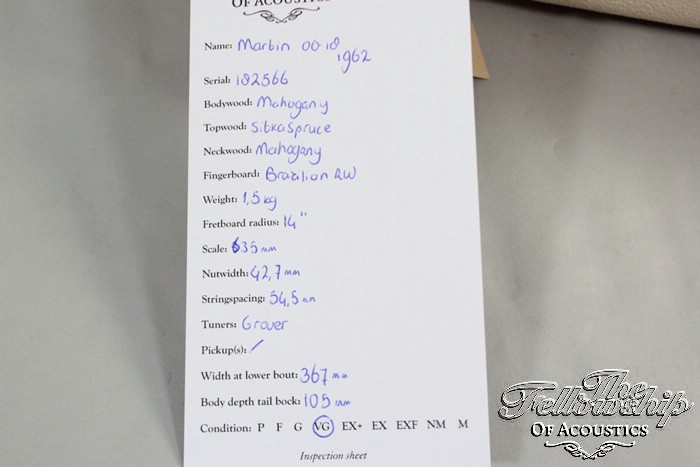 OF ACOUSTICS
Name: Martin 00 18
1962
Serial: 182566
Bodywood: Mahogany
Topwood: Sitka Spruce
Neckwood: Mahogany
Fingerboard: Brazilian RW
Weight: 1,5 kg
Fretboard radius: 14"
Scale: 635 mm
Nutwidth: 42,7 mm
Stringspacing: 54,5 mm
Tuners: Grover
Pickup(s): /
Width at lower bout: 367 mm
Body depth tail bock: 105 mm
Condition: P F G VG EX+ EX EXF NM M
Inspection sheet
The
Fellowship
OF ACOUSTICS